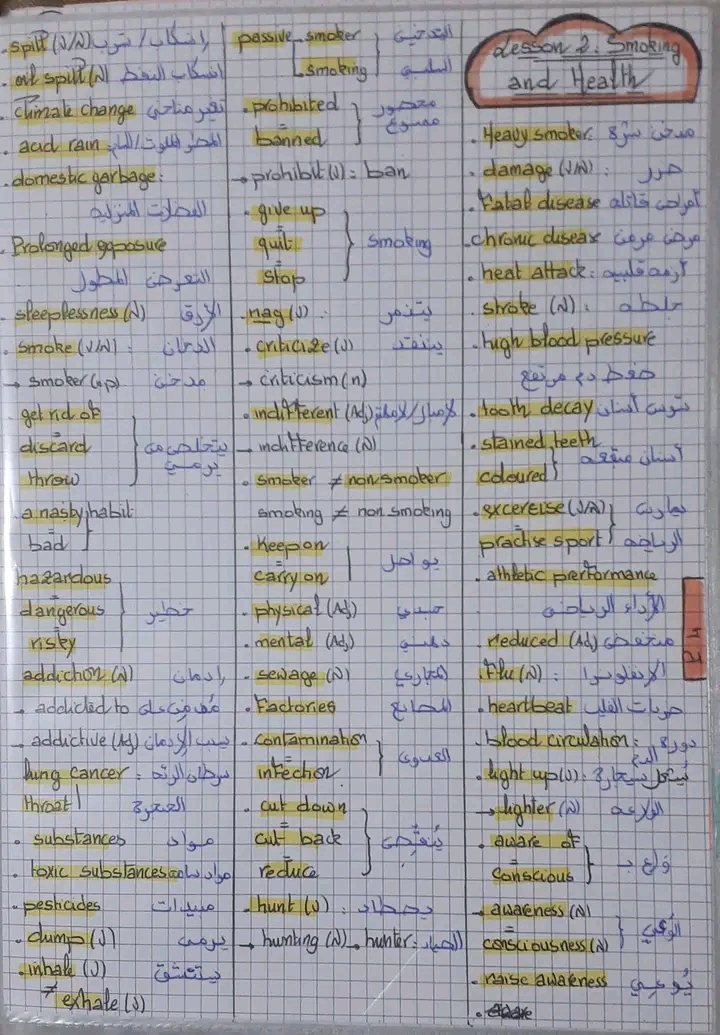 Lesson 2: Smoking
and Health
. Heavy smoker: مدخن شره
. damage (V/N): ضرر
. Fatal disease أمراض قاتلة
. chronic disease مرض مزمن
. heat attack: أزمة قلبية
. stroke (N): جلطة
. high blood pressure
ضغط دم مرتفع
. tooth decay تسوس أسنان
. stained teeth
coloured
أسنان مبقعة
. excereise (V/N)
practise sport
يمارس الرياضة
. athletic prerformance
الأداء الرياضي
. reduced (Adj) منخفض
. Flu (N): الإنفلونزا
. heartbeat ضربات القلب
. blood circulation: دورة الدم
. light up (V): يشعل سيجارة
→ lighter (N) الولاعة
. aware of
=
conscious
واع بـ
→ awareness (N)
=
consciousness (N)
الوعي
. raise awareness يوعي
passive smoker
smoking
التدخين
السلبي
. prohibited
=
banned
محضور
ممنوع
→ prohibit (V): ban
. give up
=
quit
=
stop
smoking
. nag (V): يتذمر
. criticize (V) ينتقد
→ criticism (n)
. indifferent (Adj)
→ indifference (N)
. smoker ≠ non smoker
smoking ≠ non smoking
. Keep on
=
carry on
يواصل
. physical (Adj) جسدي
. mental (Adj) ذهني
. sewage (N) المجاري
. Factories المصانع
. contamination
=
infection
العدوى
. cut down
=
cut back
=
reduce
يُنقص
. hunt (V): يصطاد
→ hunting (N) → hunter: الصياد
. spill (V/N) إنسكاب / تسرب
. oil spill (N) إنسكاب النفط
. Climate change تغير مناخي
. acid rain:
. domestic garbage:
الفضلات المنزلية
. Prolonged exposure
التعرض المطول
. sleeplessness (N) الأرق
. smoke (V/N): الدخان
→ smoker (op) مدخن
get rid of
=
discard
=
throw
يتخلص من
يرمي
. a nasty habit
=
bad
hazardous
=
dangerous
=
risky
خطير
addiction (N) إدمان
→ addicted to مُدمن على
→ addictive (Adj) يسبب الإدمان
lung cancer: سرطان الرئة
throat الحنجرة
. substances مواد
. toxic substances مواد سامة
. pesticides مبيدات
. dump (V) يرمي
. inhale (V) يستنشق
≠ exhale (V)